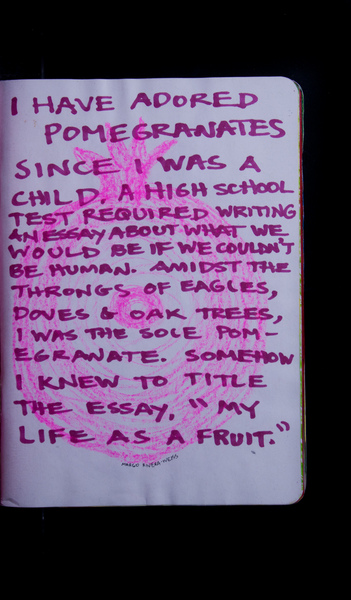 I HAVE ADORED
POMEGRANATES
SINCE I WAS A
CHILD. A HIGH SCHOOL
TEST REQUIRED WRITING
AN ESSAY ABOUT WHAT WE
WOULD BE IF WE COULDN'T
BE HUMAN. AMIDST THE
THRONGS OF EAGLES,
DOVES & OAK TREES,
I WAS THE SOLE POM-
EGRANATE. SOMEHOW
I KNEW TO TITLE
THE ESSAY, "MY
LIFE AS A FRUIT."
MARGO RIVERA-WEISS